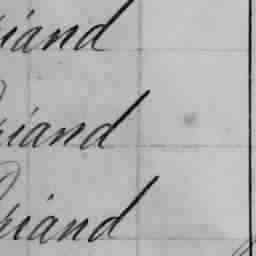 riand
riand
riand